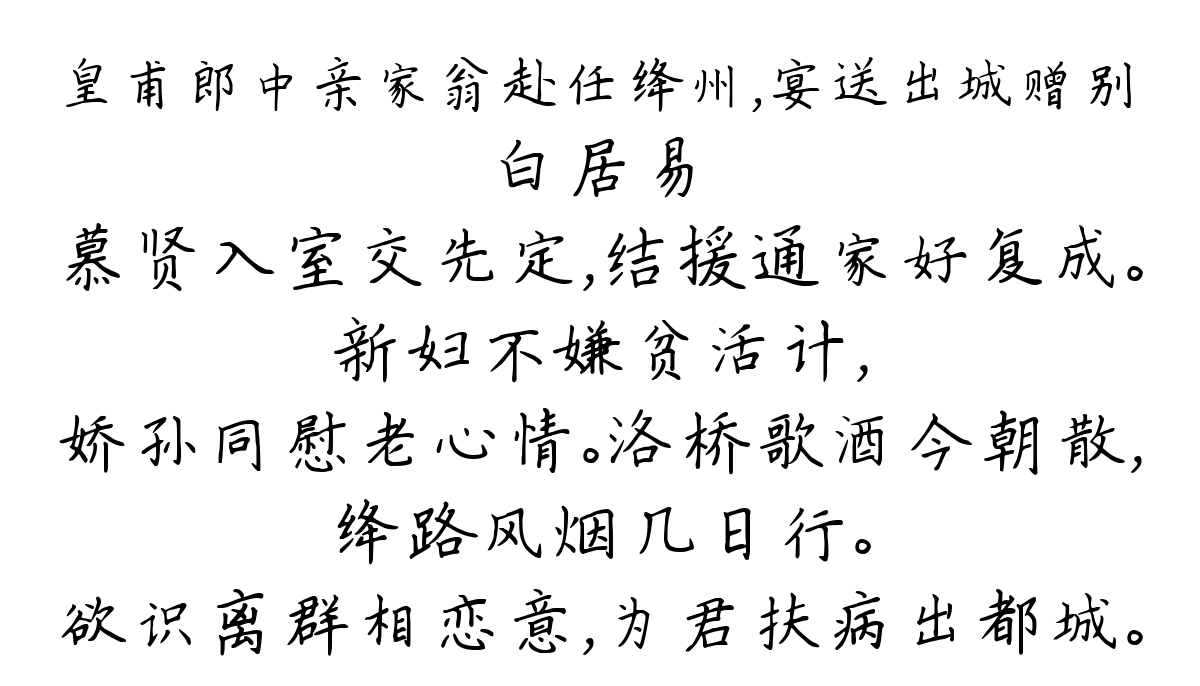 皇甫郎中亲家翁赴任绛州,宴送出城赠别
白居易
慕贤入室交先定,结援通家好复成。
新妇不嫌贫活计,
娇孙同慰老心情。洛桥歌酒今朝散,
绛路风烟几日行。
欲识离群相恋意,为君扶病出都城。